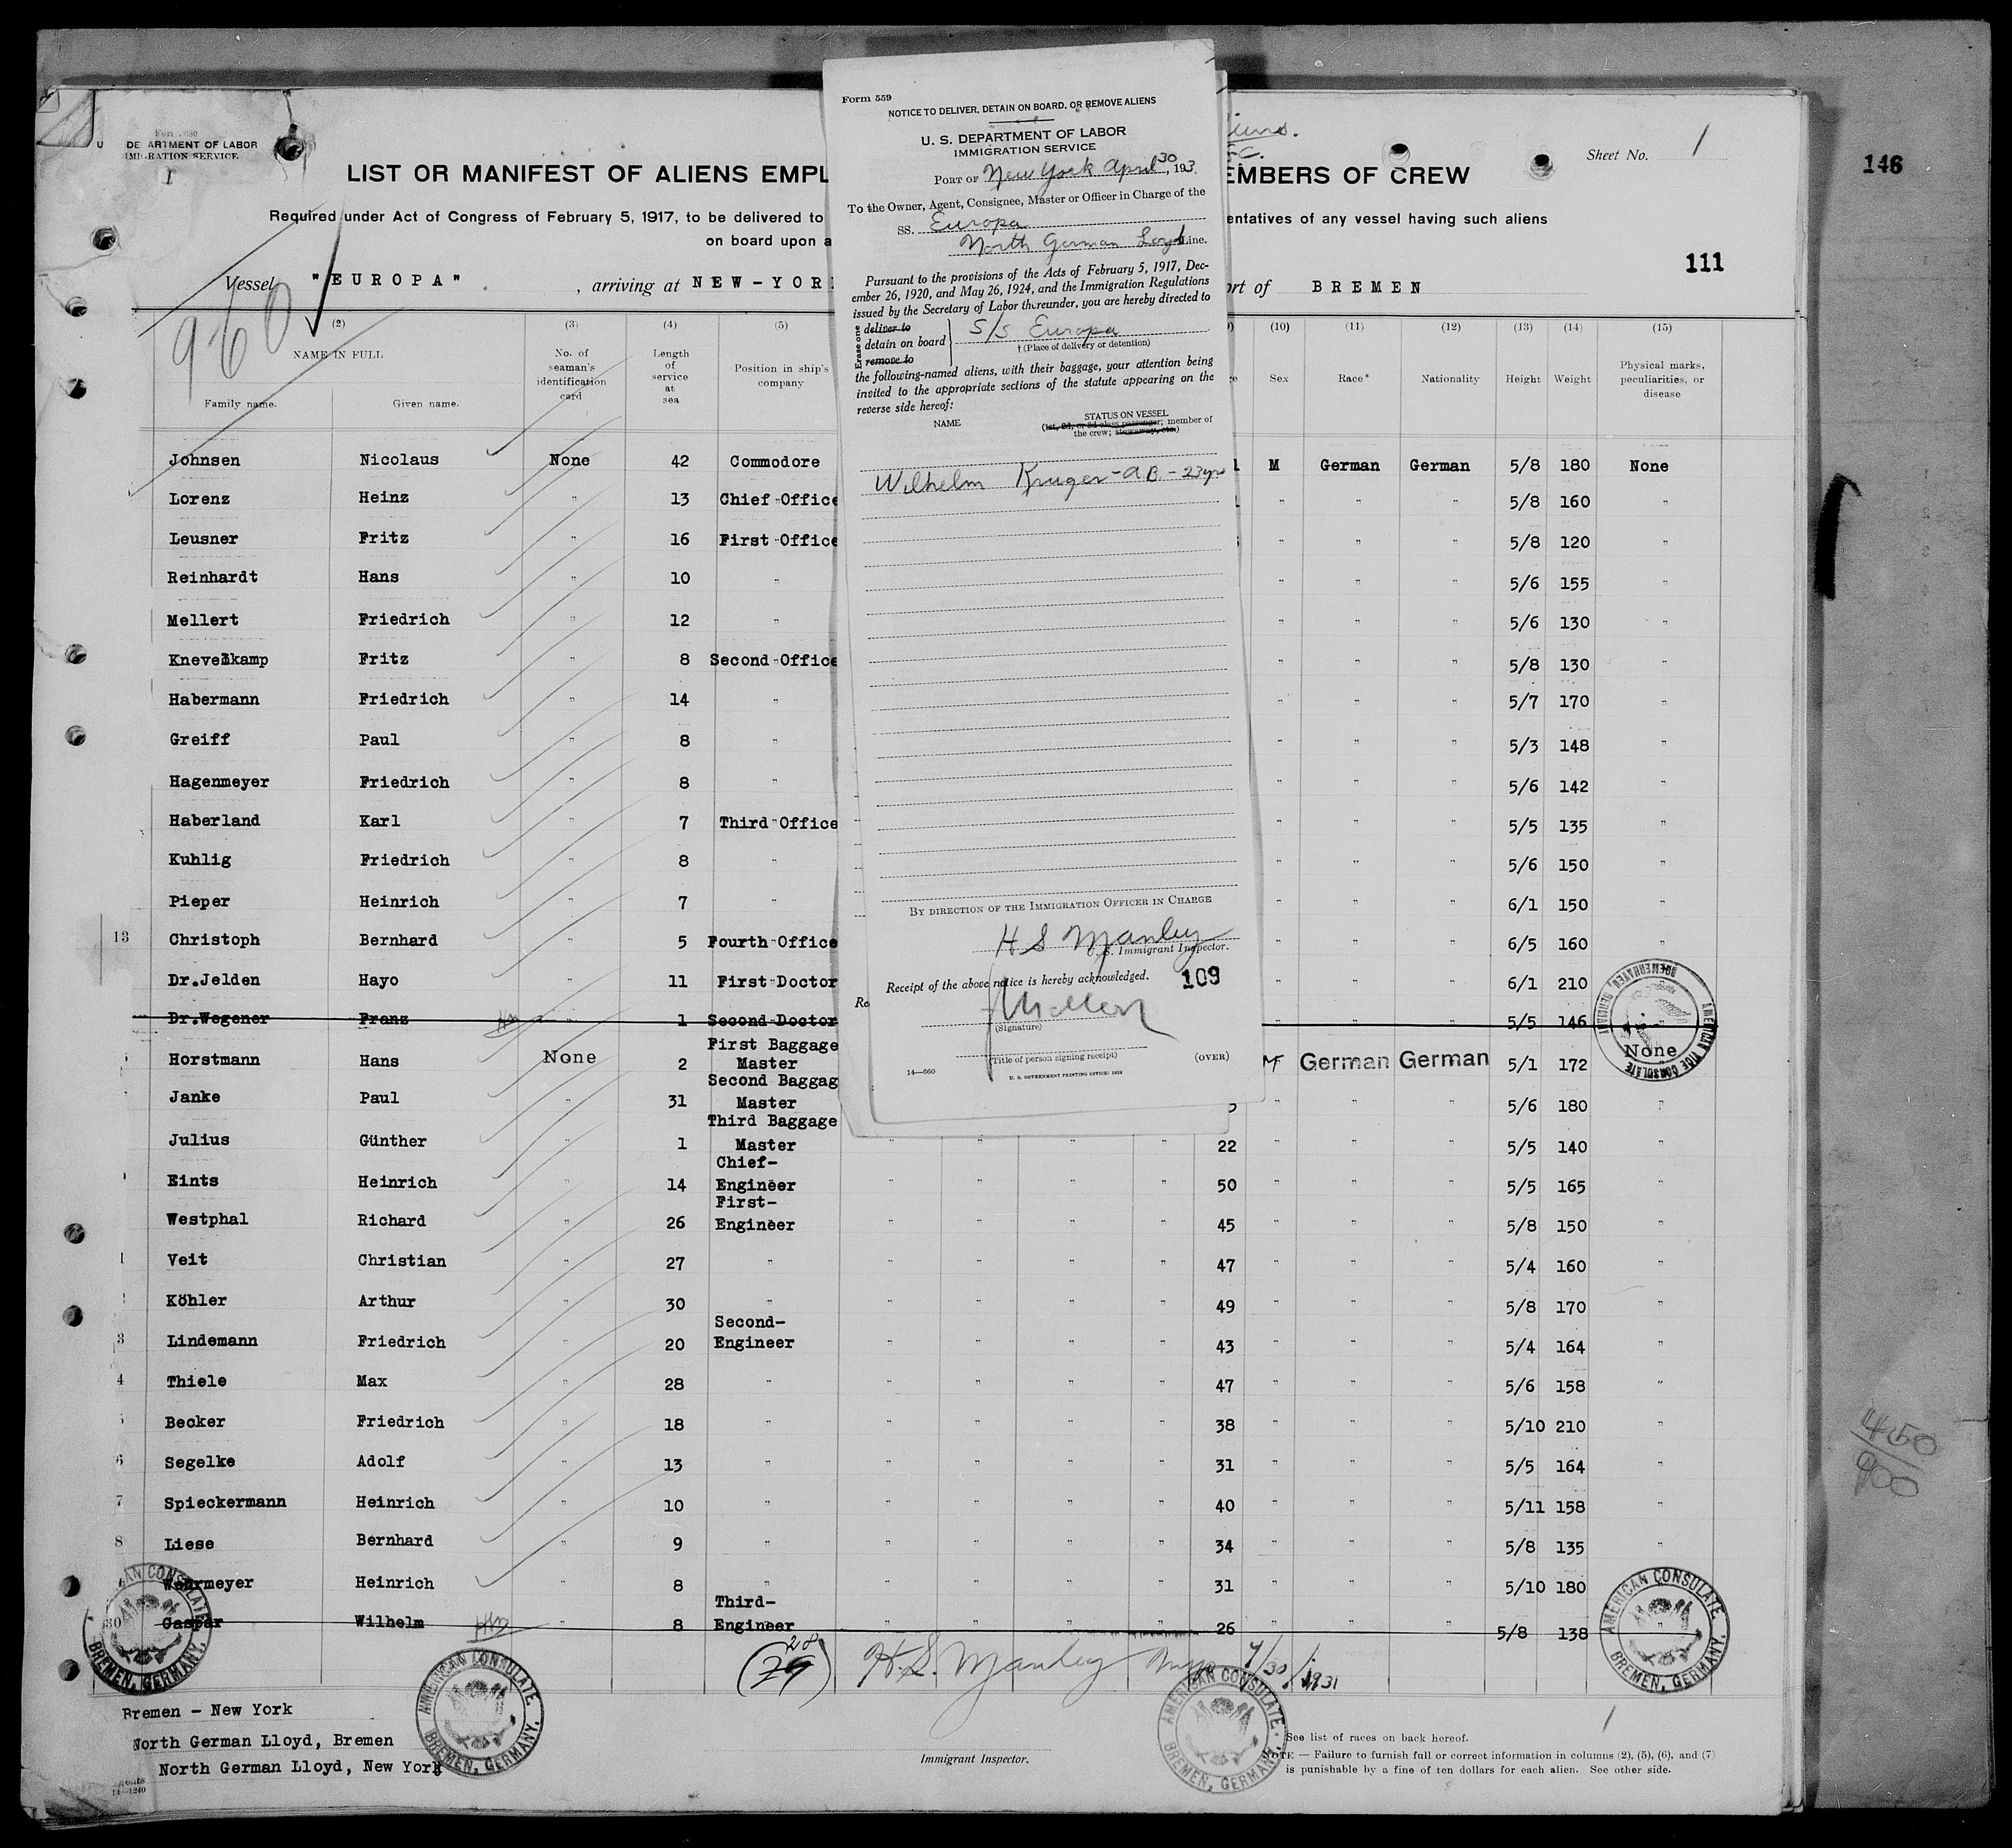 Form 680
U DE ARTMENT OF LABOR
IMMIGRATION SERVICE
1
LIST OR MANIFEST OF ALIENS EMPL
EMBERS OF CREW
Sheet No. 1
146
Required under Act of Congress of February 5, 1917, to be delivered to
entatives of any vessel having such aliens
on board upon a
111
Vessel "EUROPA" , arriving at NEW-YOR
rt of BREMEN
960
Form 559
NOTICE TO DELIVER, DETAIN ON BOARD, OR REMOVE ALIENS
U. S. DEPARTMENT OF LABOR
IMMIGRATION SERVICE
PORT OF New York April 30, 193
To the Owner, Agent, Consignee, Master or Officer in Charge of the
SS. Europa
North German Loyd Line.
Pursuant to the provisions of the Acts of February 5, 1917, Dec-
ember 26, 1920, and May 26, 1924, and the Immigration Regulations
issued by the Secretary of Labor thereunder, you are hereby directed to
Erase one
deliver to
detain on board
remove to
S/S Europa
† (Place of delivery or detention)
the following-named aliens, with their baggage, your attention being
invited to the appropriate sections of the statute appearing on the
reverse side hereof:
NAME
STATUS ON VESSEL
(1st, 2d, or 3d class passenger; member of
the crew; stowaway, etc.)
Wilhelm Kruger - AB - 23 yrs
BY DIRECTION OF THE IMMIGRATION OFFICER IN CHARGE
H S Manley
U. S. Immigrant Inspector.
Receipt of the above notice is hereby acknowledged. 109
(Signature)
(Title of person signing receipt) (OVER)
14—660
U. S. GOVERNMENT PRINTING OFFICE: 1929
(2) (3) (4) (5) (10) (11) (12) (13) (14) (15)
NAME IN FULL
Family name. Given name.
No. of seaman's identification card
Length of service at sea
Position in ship's company
Sex Race* Nationality Height Weight
Physical marks, peculiarities, or disease
Johnsen Nicolaus None 42 Commodore M German German 5/8 180 None
Lorenz Heinz " 13 Chief Office " " " 5/8 160 "
Leusner Fritz " 16 First Office " " " 5/8 120 "
Reinhardt Hans " 10 " " " " 5/6 155 "
Mellert Friedrich " 12 " " " " 5/6 130 "
Knevelkamp Fritz " 8 Second Office " " " 5/8 130 "
Habermann Friedrich " 14 " " " " 5/7 170 "
Greiff Paul " 8 " " " " 5/3 148 "
Hagenmeyer Friedrich " 8 " " " " 5/6 142 "
Haberland Karl " 7 Third Office " " " 5/5 135 "
Kuhlig Friedrich " 8 " " " " 5/6 150 "
Pieper Heinrich " 7 " " " " 6/1 150 "
13 Christoph Bernhard " 5 Fourth Office " " " 6/5 160 "
Dr.Jelden Hayo " 11 First Doctor " " " 6/1 210 "
Dr.Wegener Franz " 1 Second Doctor 5/5 146 "
Horstmann Hans None 2 First Baggage Master M German German 5/1 172 None
Janke Paul " 31 Second Baggag Master " " " 5/6 180 "
Julius Günther " 1 Third Baggage Master " " " " 22 " " " 5/5 140 "
Eints Heinrich " 14 Chief-Engineer " " " " 50 " " " 5/5 165 "
Westphal Richard " 26 First-Engineer " " " " 45 " " " 5/8 150 "
1 Veit Christian " 27 " " " " " 47 " " " 5/4 160 "
Köhler Arthur " 30 " " " " " 49 " " " 5/8 170 "
3 Lindemann Friedrich " 20 Second-Engineer " " " " 43 " " " 5/4 164 "
4 Thiele Max " 28 " " " " " 47 " " " 5/6 158 "
Becker Friedrich " 18 " " " " " 38 " " " 5/10 210 "
6 Segelke Adolf " 13 " " " " " 31 " " " 5/5 164 "
7 Spieckermann Heinrich " 10 " " " " " 40 " " " 5/11 158 "
8 Liese Bernhard " 9 " " " " " 34 " " " 5/8 135 "
Wehrmeyer Heinrich " 8 " " " " " 31 " " " 5/10 180 "
30 Caspar Wilhelm " 8 Third-Engineer " " " " 26 " " " 5/8 138 "
AMERICAN VICE CONSULATE BREMERHAVEN, GERMANY
AMERICAN CONSULATE BREMEN, GERMANY.
AMERICAN CONSULATE. BREMEN, GERMANY.
AMERICAN CONSULATE. BREMEN, GERMANY.
AMERICAN CONSULATE BREMEN, GERMANY.
450
900
28
(29) H.S. Manley 4/30/1931
Bremen - New York
North German Lloyd, Bremen
North German Lloyd, New York
14—1240
Immigrant Inspector.
1
See list of races on back hereof.
NOTE — Failure to furnish full or correct information in columns (2), (5), (6), and (7)
is punishable by a fine of ten dollars for each alien. See other side.